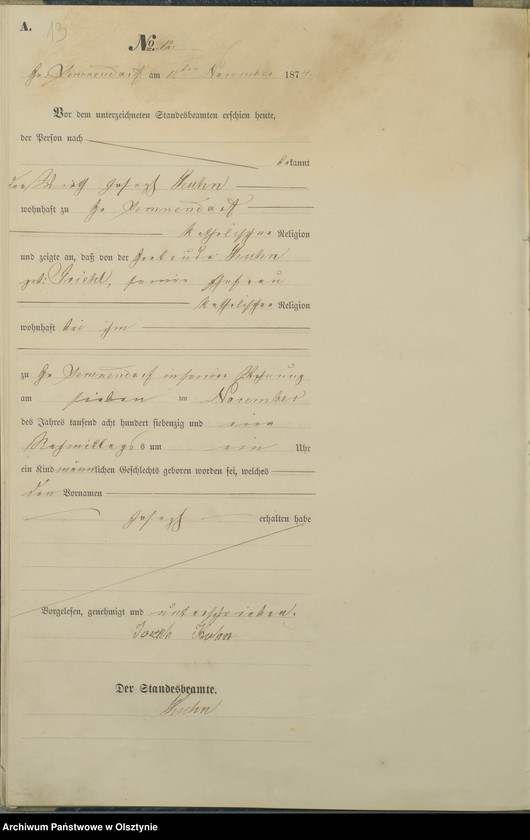 A.
13
No. 12.
Gr. am 12ten November 1874.
Vor dem unterzeichneten Standesbeamten erschien heute,
der Person nach
bekannt
der Wirth Joseph Kuhn
wohnhaft zu Gr.
katholischer Religion
und zeigte an, daß von der Gertrude Kuhn
geb: seiner Ehefrau
katholischer Religion
wohnhaft bei ihm
zu Gr. in seiner Wohnung
am sieben ten November
des Jahres tausend acht hundert siebenzig und vier
Nachmittags um ein Uhr
ein Kind männlichen Geschlechts geboren worden sei, welches
den Vornamen
Joseph erhalten habe
Vorgelesen, genehmigt und unterschrieben.
Joseph Kuhn
Der Standesbeamte.
Kuhn
Archiwum Państwowe w Olsztynie